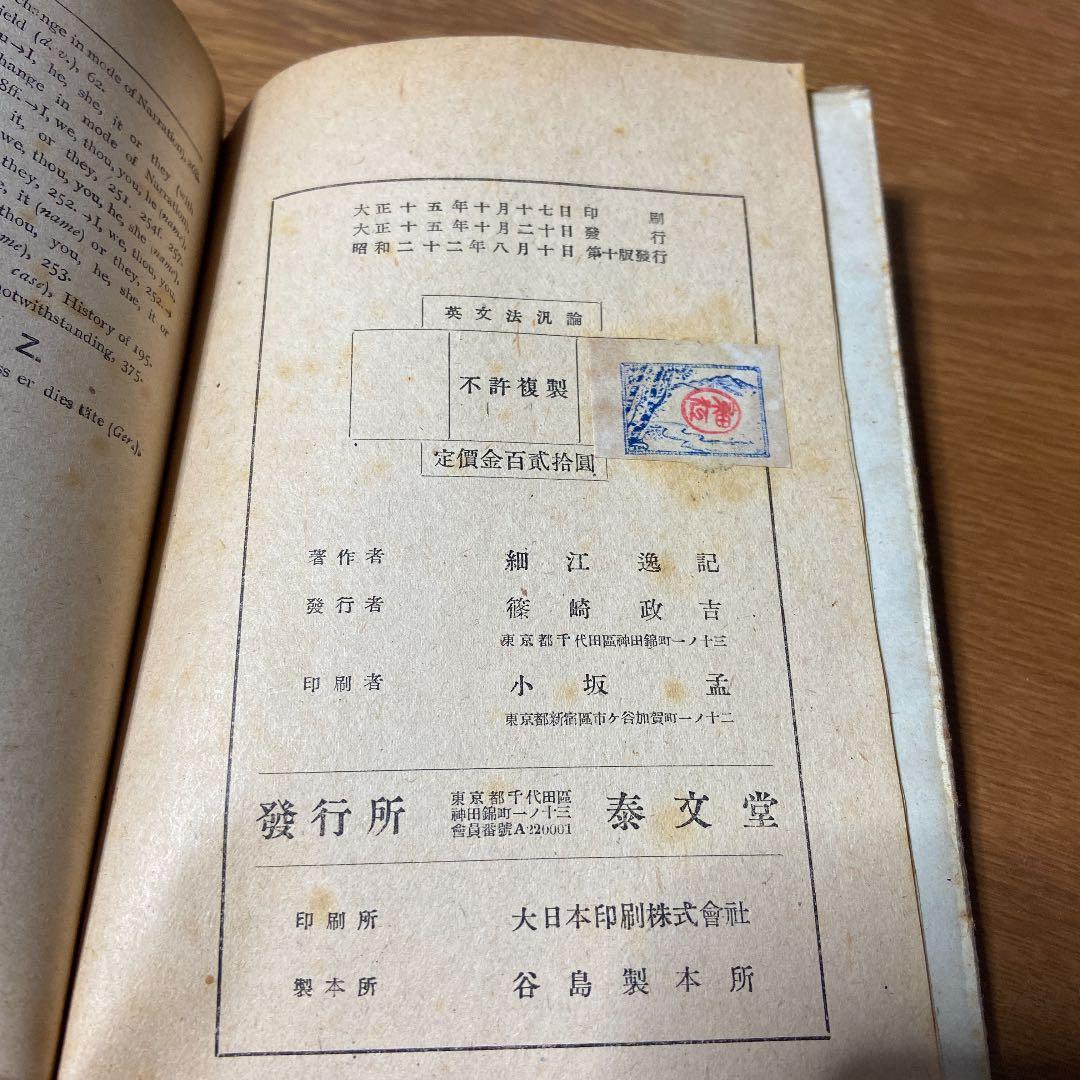 change in mode of Narration),
ield (d. v.), 62.
u→I, he, she, it or they (with
hange in mode of Narration),
8ff.→I, we, thou, you, he (name),
it, or they, 251. 254f. 257.
we, thou, you, he, she (name),
they, 252.→I, we, thou, you,
e, it (name) or they, 252.→
thou, you, he, she, it or
me), 253.
case), History of 195.
notwithstanding, 375.
Z.
ss er dies täte (Ger.),
大正十五年十月十七日印刷
大正十五年十月二十日發行
昭和二十二年八月十日 第十版發行
英文法汎論
不許複製
定價金百貳拾圓
著作者 細江逸記
發行者 篠崎政吉
東京都千代田區神田錦町一ノ十三
印刷者 小坂孟
東京都新宿區市ケ谷加賀町一ノ十二
發行所 東京都千代田區
神田錦町一ノ十三
會員番號A220001
泰文堂
印刷所 大日本印刷株式會社
製本所 谷島製本所